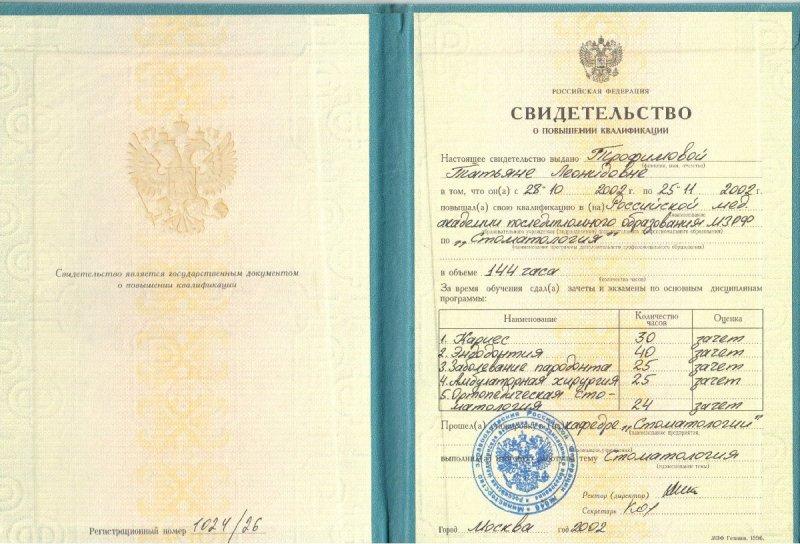 Свидетельство является государственным документом
о повышении квалификации
Регистрационный номер 1024/26
РОССИЙСКАЯ ФЕДЕРАЦИЯ
СВИДЕТЕЛЬСТВО
О ПОВЫШЕНИИ КВАЛИФИКАЦИИ
Настоящее свидетельство выдано Трофимовой
(фамилия, имя, отчество)
Татьяне Леонидовне
в том, что он(а) с 28-10 2002 г. по 25-11 2002 г.
повышал(а) свою квалификацию в (на) Российской мед.
(наименование
академии последипломного образования МЗРФ
образовательного учреждения (подразделения) дополнительного профессионального образования)
по „Стоматология"
(наименование программы дополнительного профессионального образования)
в объеме 144 часа
(количество часов)
За время обучения сдал(а) зачеты и экзамены по основным дисциплинам
программы:
Наименование Количество часов Оценка
1. Кариес 30 зачет
2. Эндодонтия 40 зачет
3. Заболевание пародонта 25 зачет
4. Амбулаторная хирургия 25 зачет
5. Ортопедическая сто-
матология 24 зачет
Прошел(а) кафедре „Стоматологии"
(наименование предприятия,
выполнил(а) тему Стоматология
(наименование темы)
Ректор (директор)
Секретарь
Город Москва год 2002
МПФ Гознака. 1996.